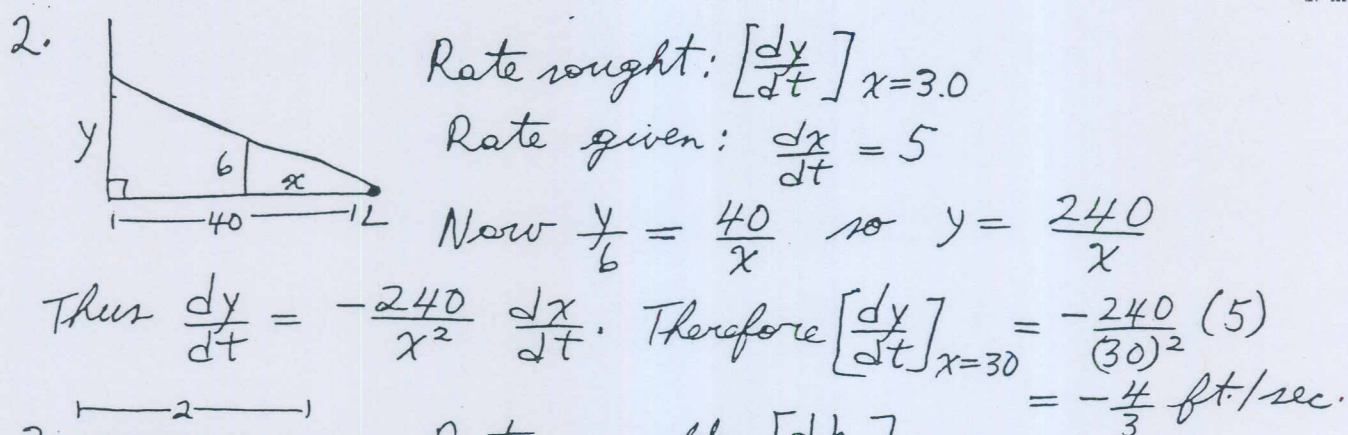 2.
Rate sought: [dy/dt] x=3.0
y
6
x
Rate given: dx/dt = 5
40
L
Now y/6 = 40/x so y = 240/x
Thus dy/dt = -240/x² dx/dt. Therefore [dy/dt] x=30 = -240/(30)² (5)
= -4/3 ft./sec.
2